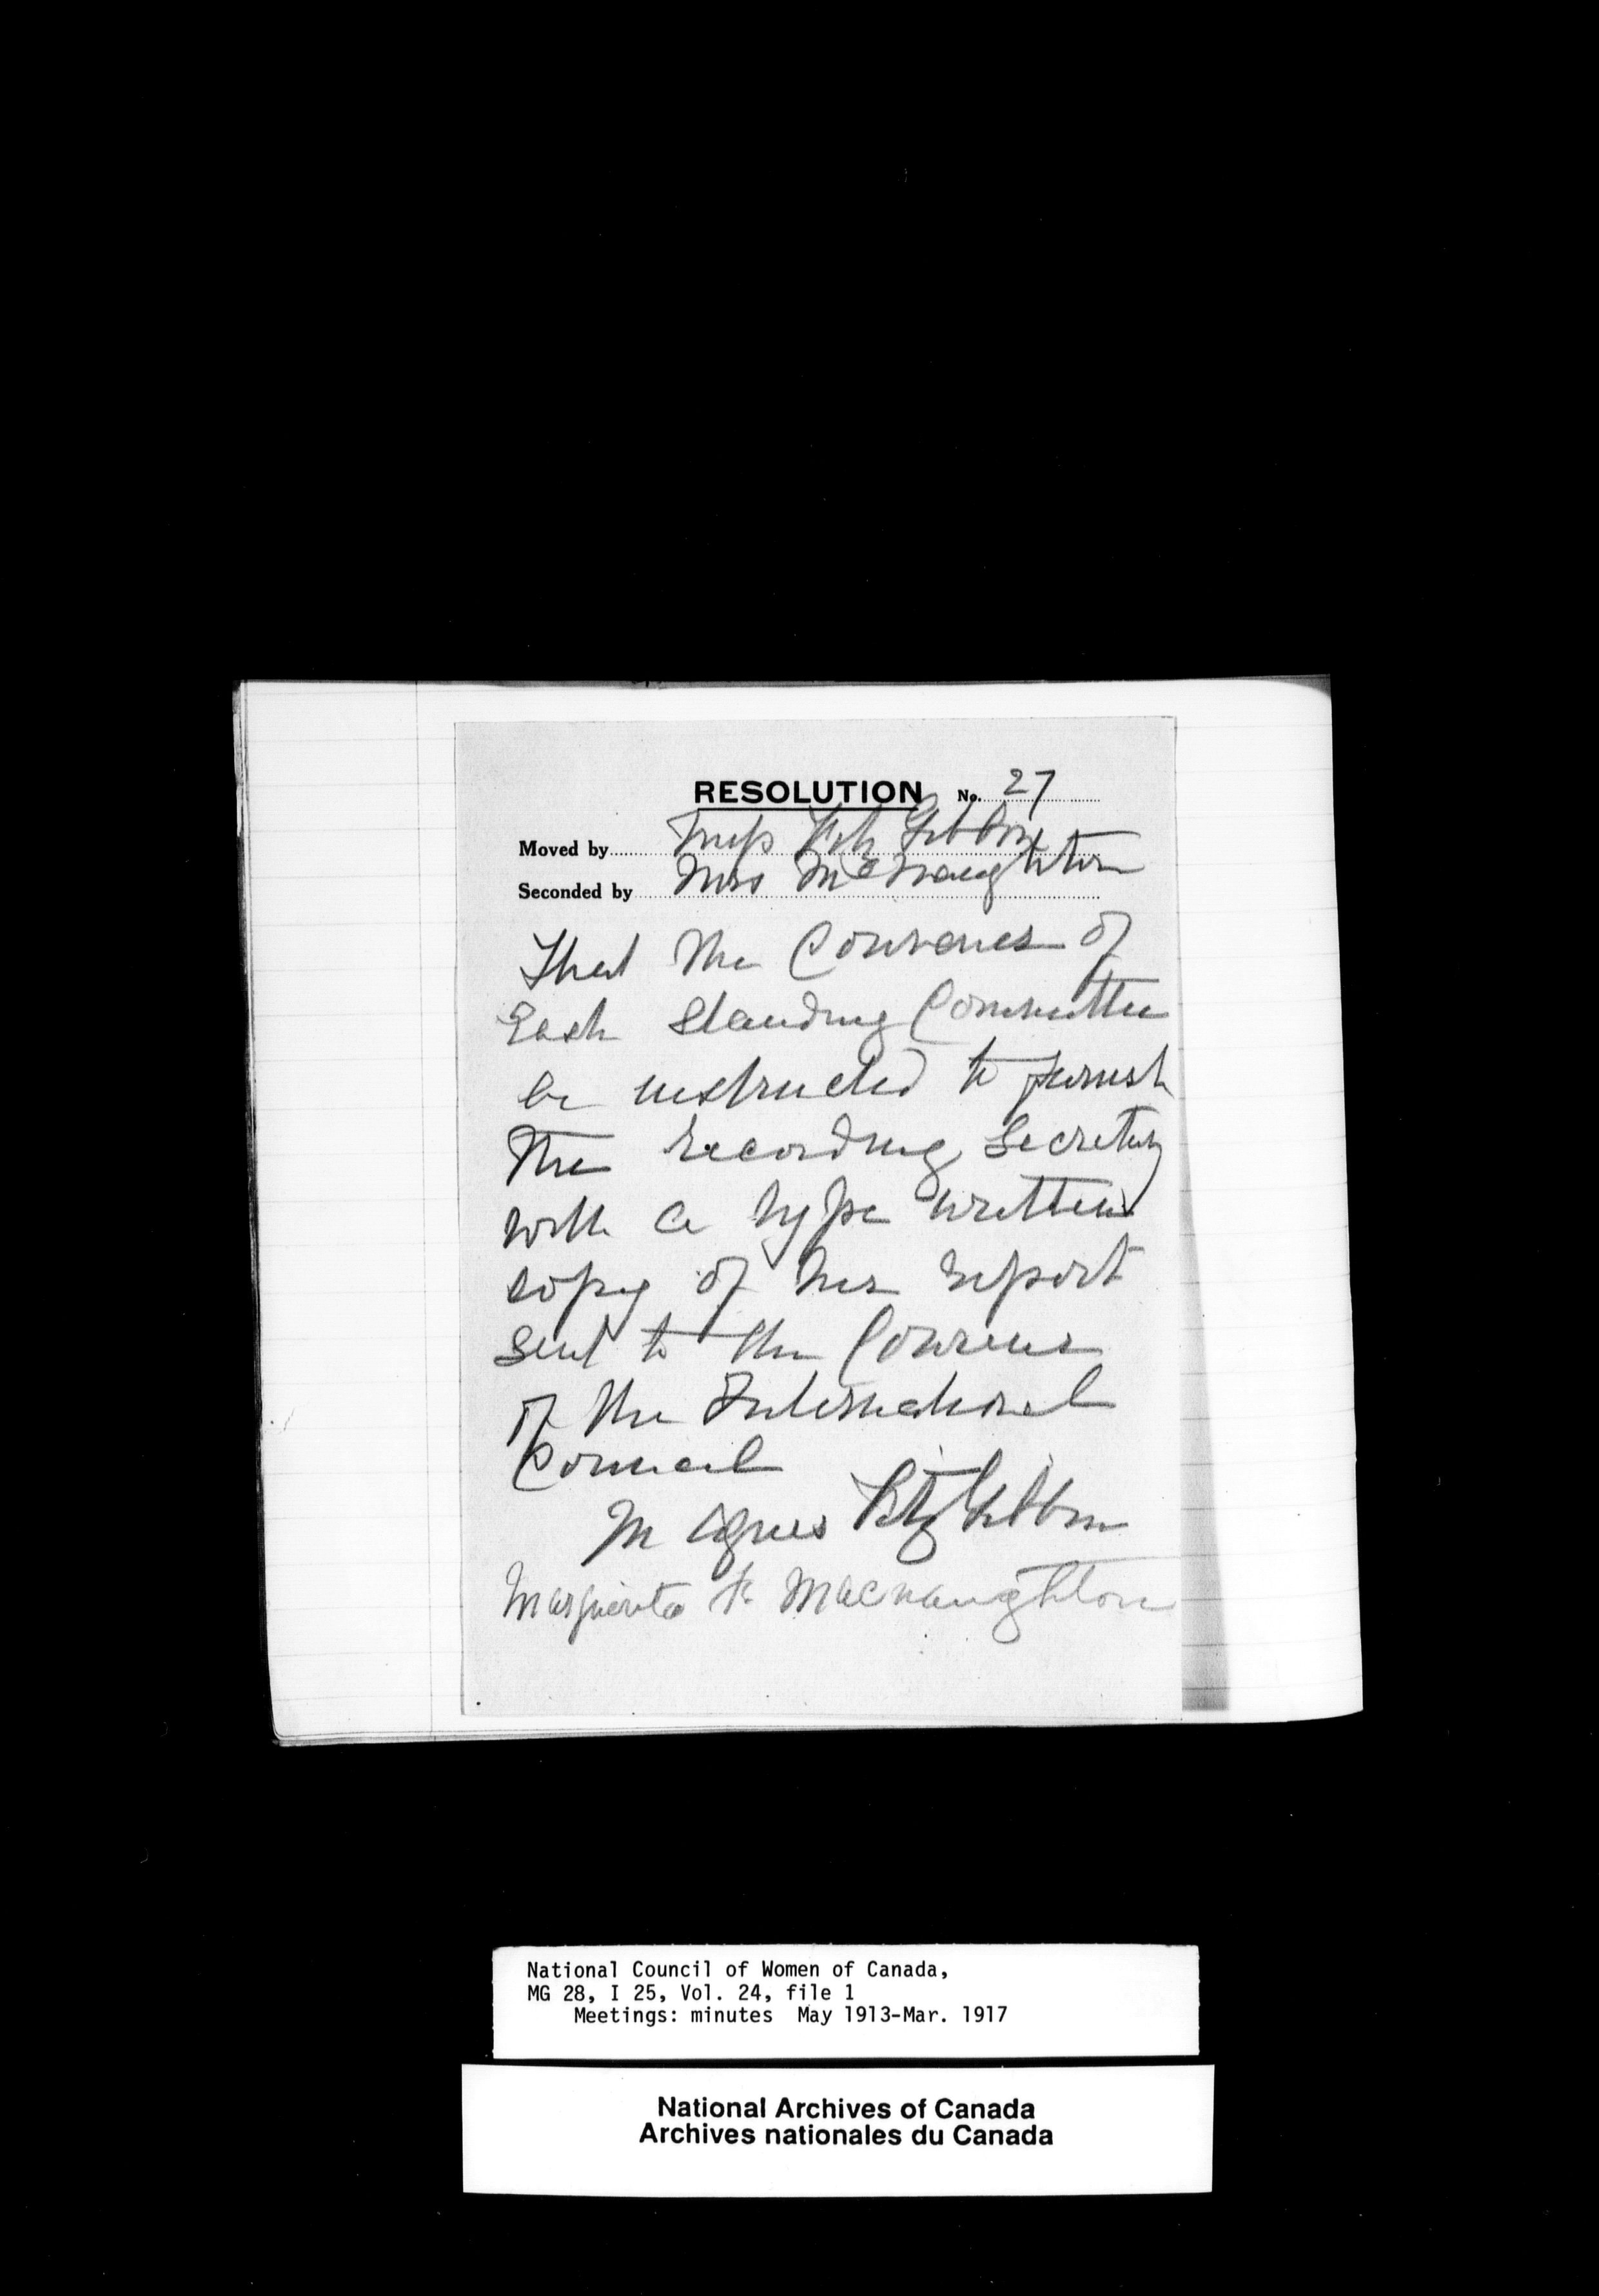 RESOLUTION No. 27
Moved by Miss Fitz Gibbon
Seconded by Mrs McNaughton
That the Convener of
Each Standing Committee
be instructed to furnish
the recording Secretary
with a type written
copy of her report
sent to the Convener
of the International
Council
M Agnes FitzGibbon
Marguerita F. Macnaughton
National Council of Women of Canada,
MG 28, I 25, Vol. 24, file 1
Meetings: minutes May 1913-Mar. 1917
National Archives of Canada
Archives nationales du Canada